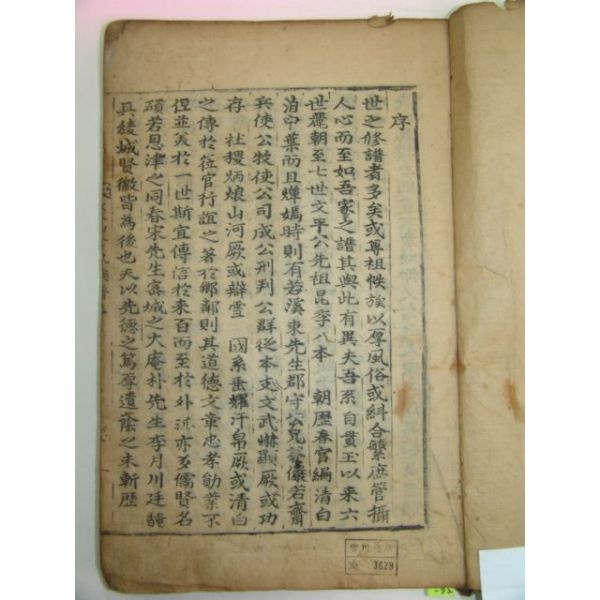 序
世之修譜者多矣或尊祖恤族以厚風俗或糾合繁庶管攝
人心而至如吾家之譜其與此有異夫吾系自貫玉以來六
世麗朝至七世文平公先祖昆季八本 朝歷春官編清白
洎中葉而且蟬嫣時則有若溪東先生郡守公兄若齋
兵使公牧使公司成公刑判公群從本支文武嚇顯厥或功
存 社稷炳烺山河厥或辯雪 國系垂耀汗帛厥或清白
之傳於莅官行誼之著於鄉鄰則其道德文章忠孝勳業不
但並美於一世斯宜傳信於來百而至於外派亦多儒賢名
碩若恩津之同春宋先生密城之大庵朴先生李月川廷馣
具綾城賢徽皆為後也夫以先德之篤厚遺蔭之未斬歷
3629